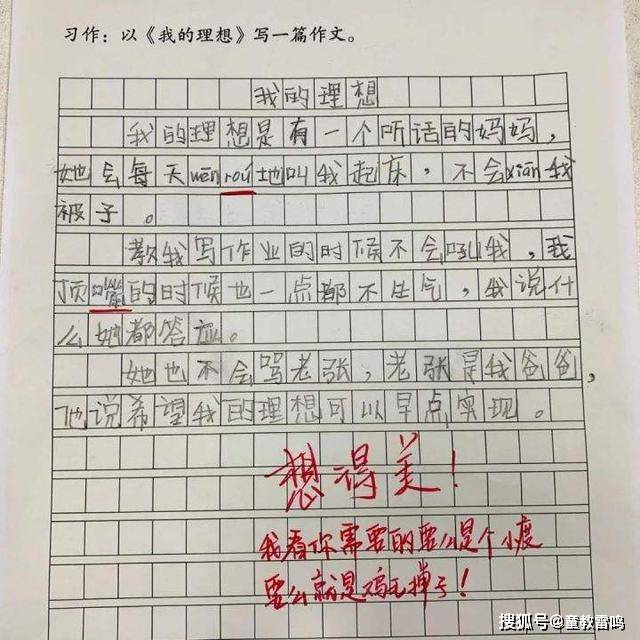 习作：以《我的理想》写一篇作文。
我的理想
我的理想是有一个听话的妈妈，
她会每天wen rou地叫我起床，不会xian我
被子。
教我写作业的时候不会吼我，我
顶嘴的时候也一点都不生气，我说什
么她都答应。
她也不会骂老张，老张是我爸爸，
他说希望我的理想可以早点实现。
想得美！
我看你需要的要么是个小度
要么就是鸡毛掸子！
搜狐号@童教雷鸣